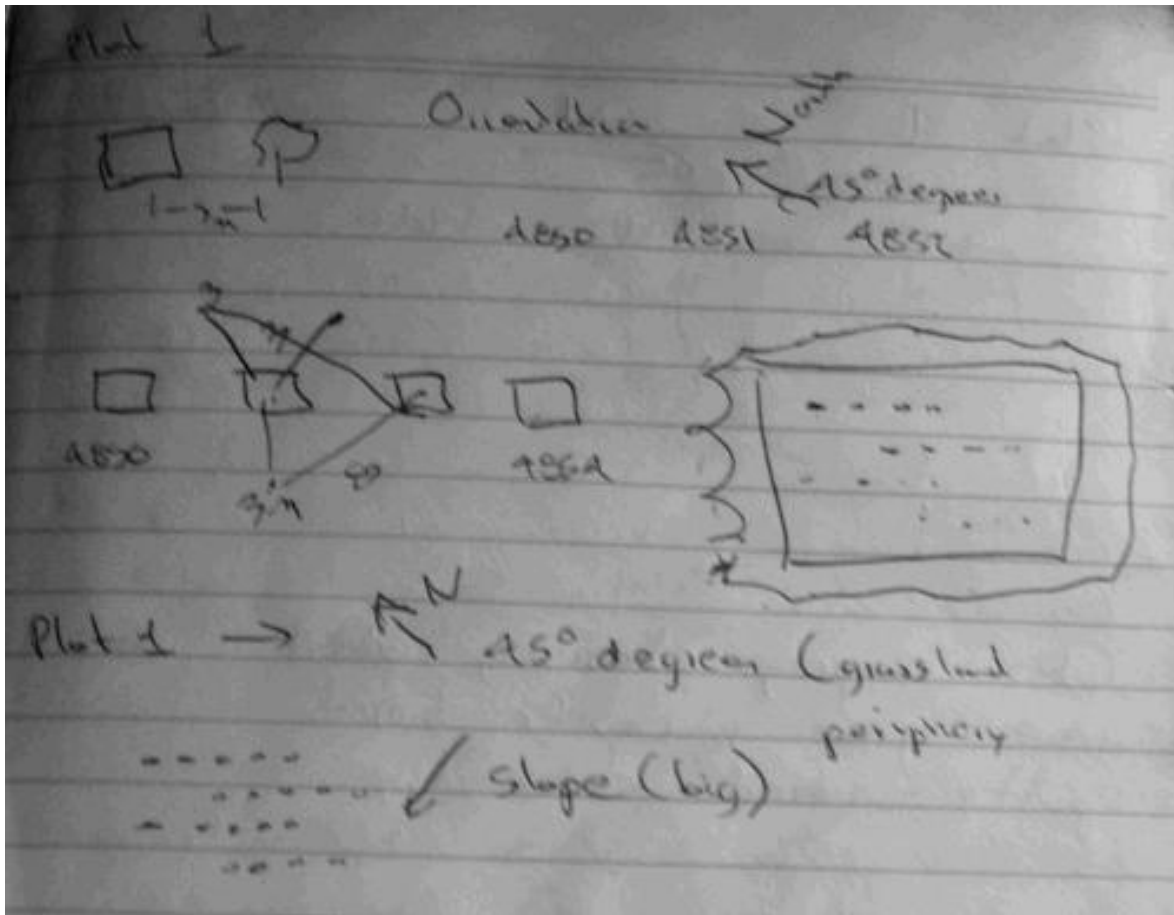 Plot 1
Orientation
North
45° degrees
4850 4851 4852
4850
3m
Plot 1 → N
45° degrees (grassland
periphery
Slope (big)